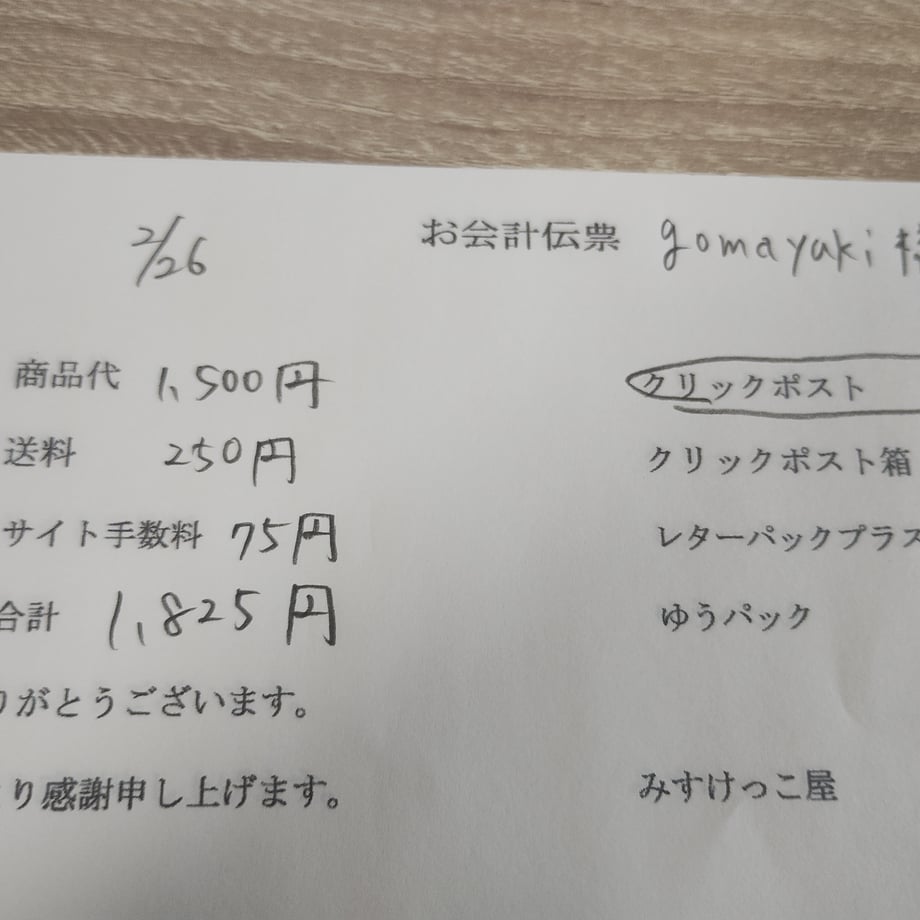 2/26
お会計伝票 gomayaki 様
商品代 1,500円
クリックポスト
送料 250円
クリックポスト箱
サイト手数料 75円
レターパックプラス
合計 1,825円
ゆうパック
りがとうございます。
り感謝申し上げます。
みすけっこ屋